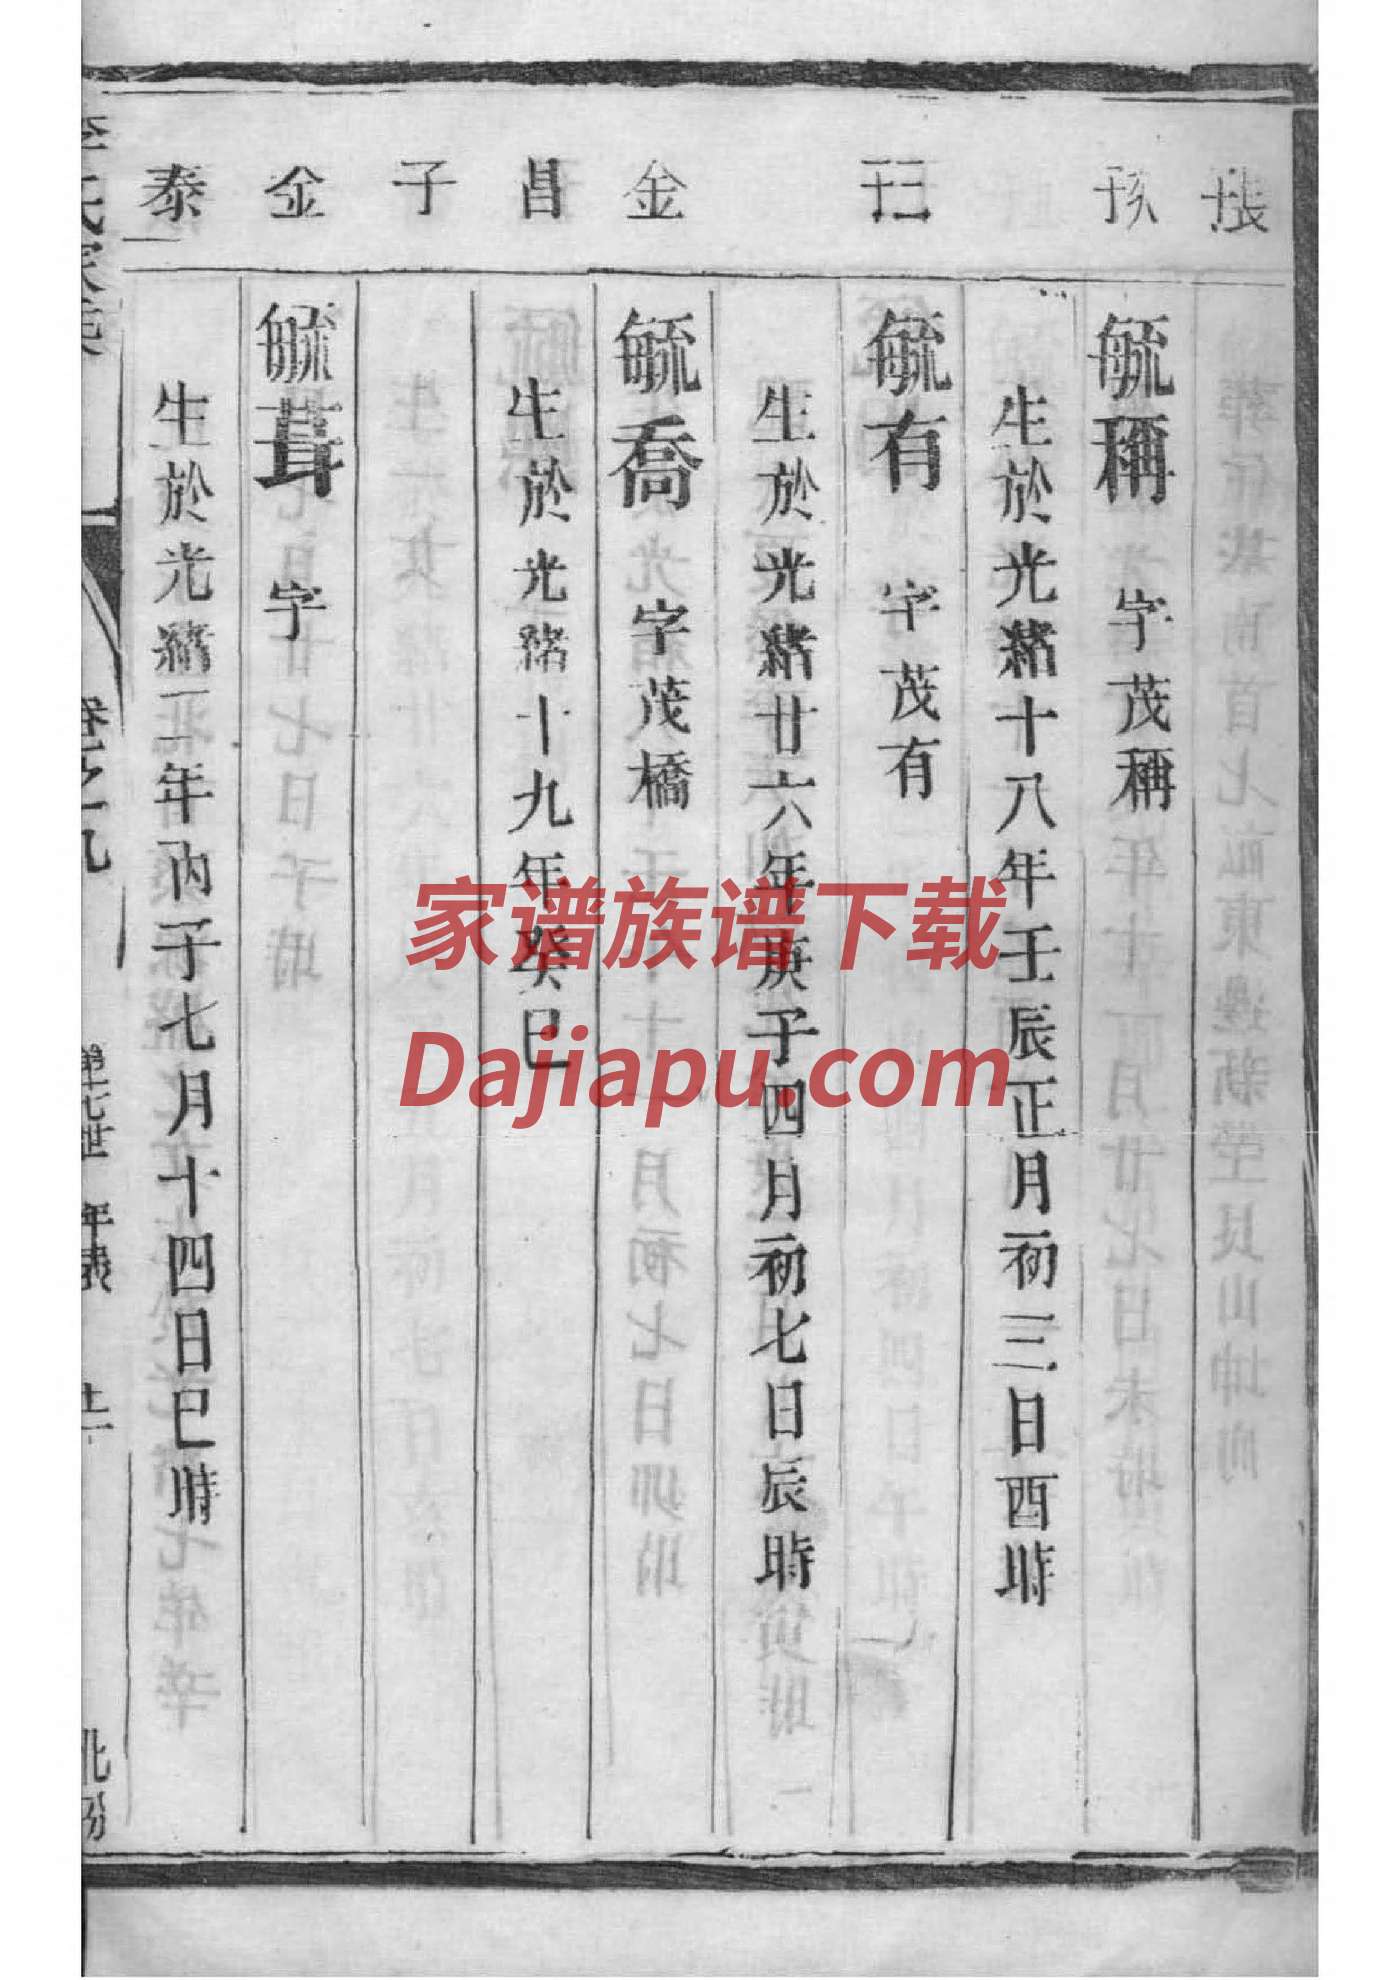 毓稱 字茂稱
生於光緒十八年壬辰正月初三日酉時
毓有 字茂有
生於光緒廿六年庚子四月初七日辰時
金
毓喬 字茂橋
昌
生於光緒十九年癸巳
子
金
毓葺 字
泰
生於光緒二年丙子七月十四日巳時
卷之九
第七世 年表
家谱族谱下载
Dajiapu.com